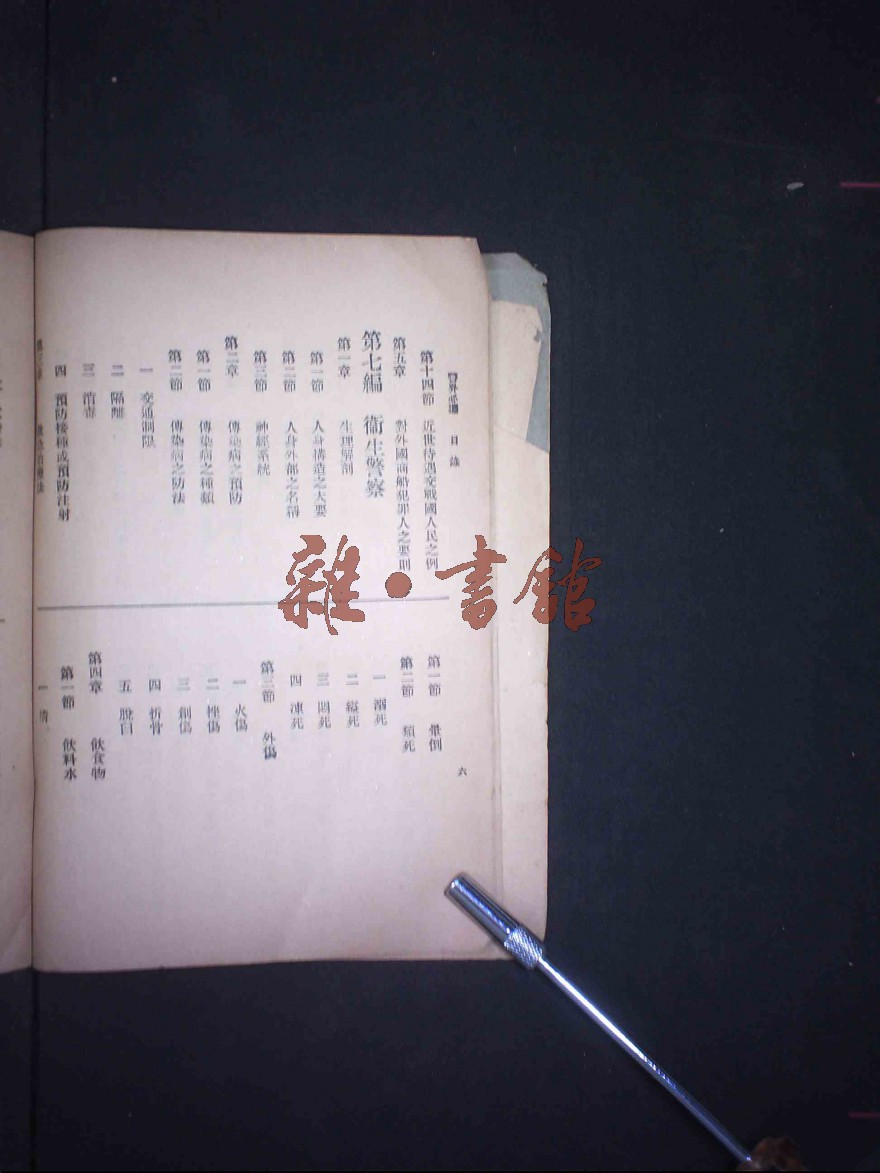 目錄
六
第十四節 近世待遇交戰國人民之例
第五章 對外國商船犯罪人之要則
第七編 衞生警察
第一章 生理解剖
第一節 人身構造之大要
第二節 人身外部之名稱
第三節 神經系統
第二章 傳染病之預防
第一節 傳染病之種類
第二節 傳染病之防法
一 交通制限
二 隔離
三 消毒
四 預防接種或預防注射
第三章
第一節 暈倒
第二節 類死
一 溺死
二 縊死
三 悶死
四 凍死
第三節 外傷
一 火傷
二 挫傷
三 創傷
四 折骨
五 脫臼
第四章 飲食物
第一節 飲料水
一 清
雜·書館